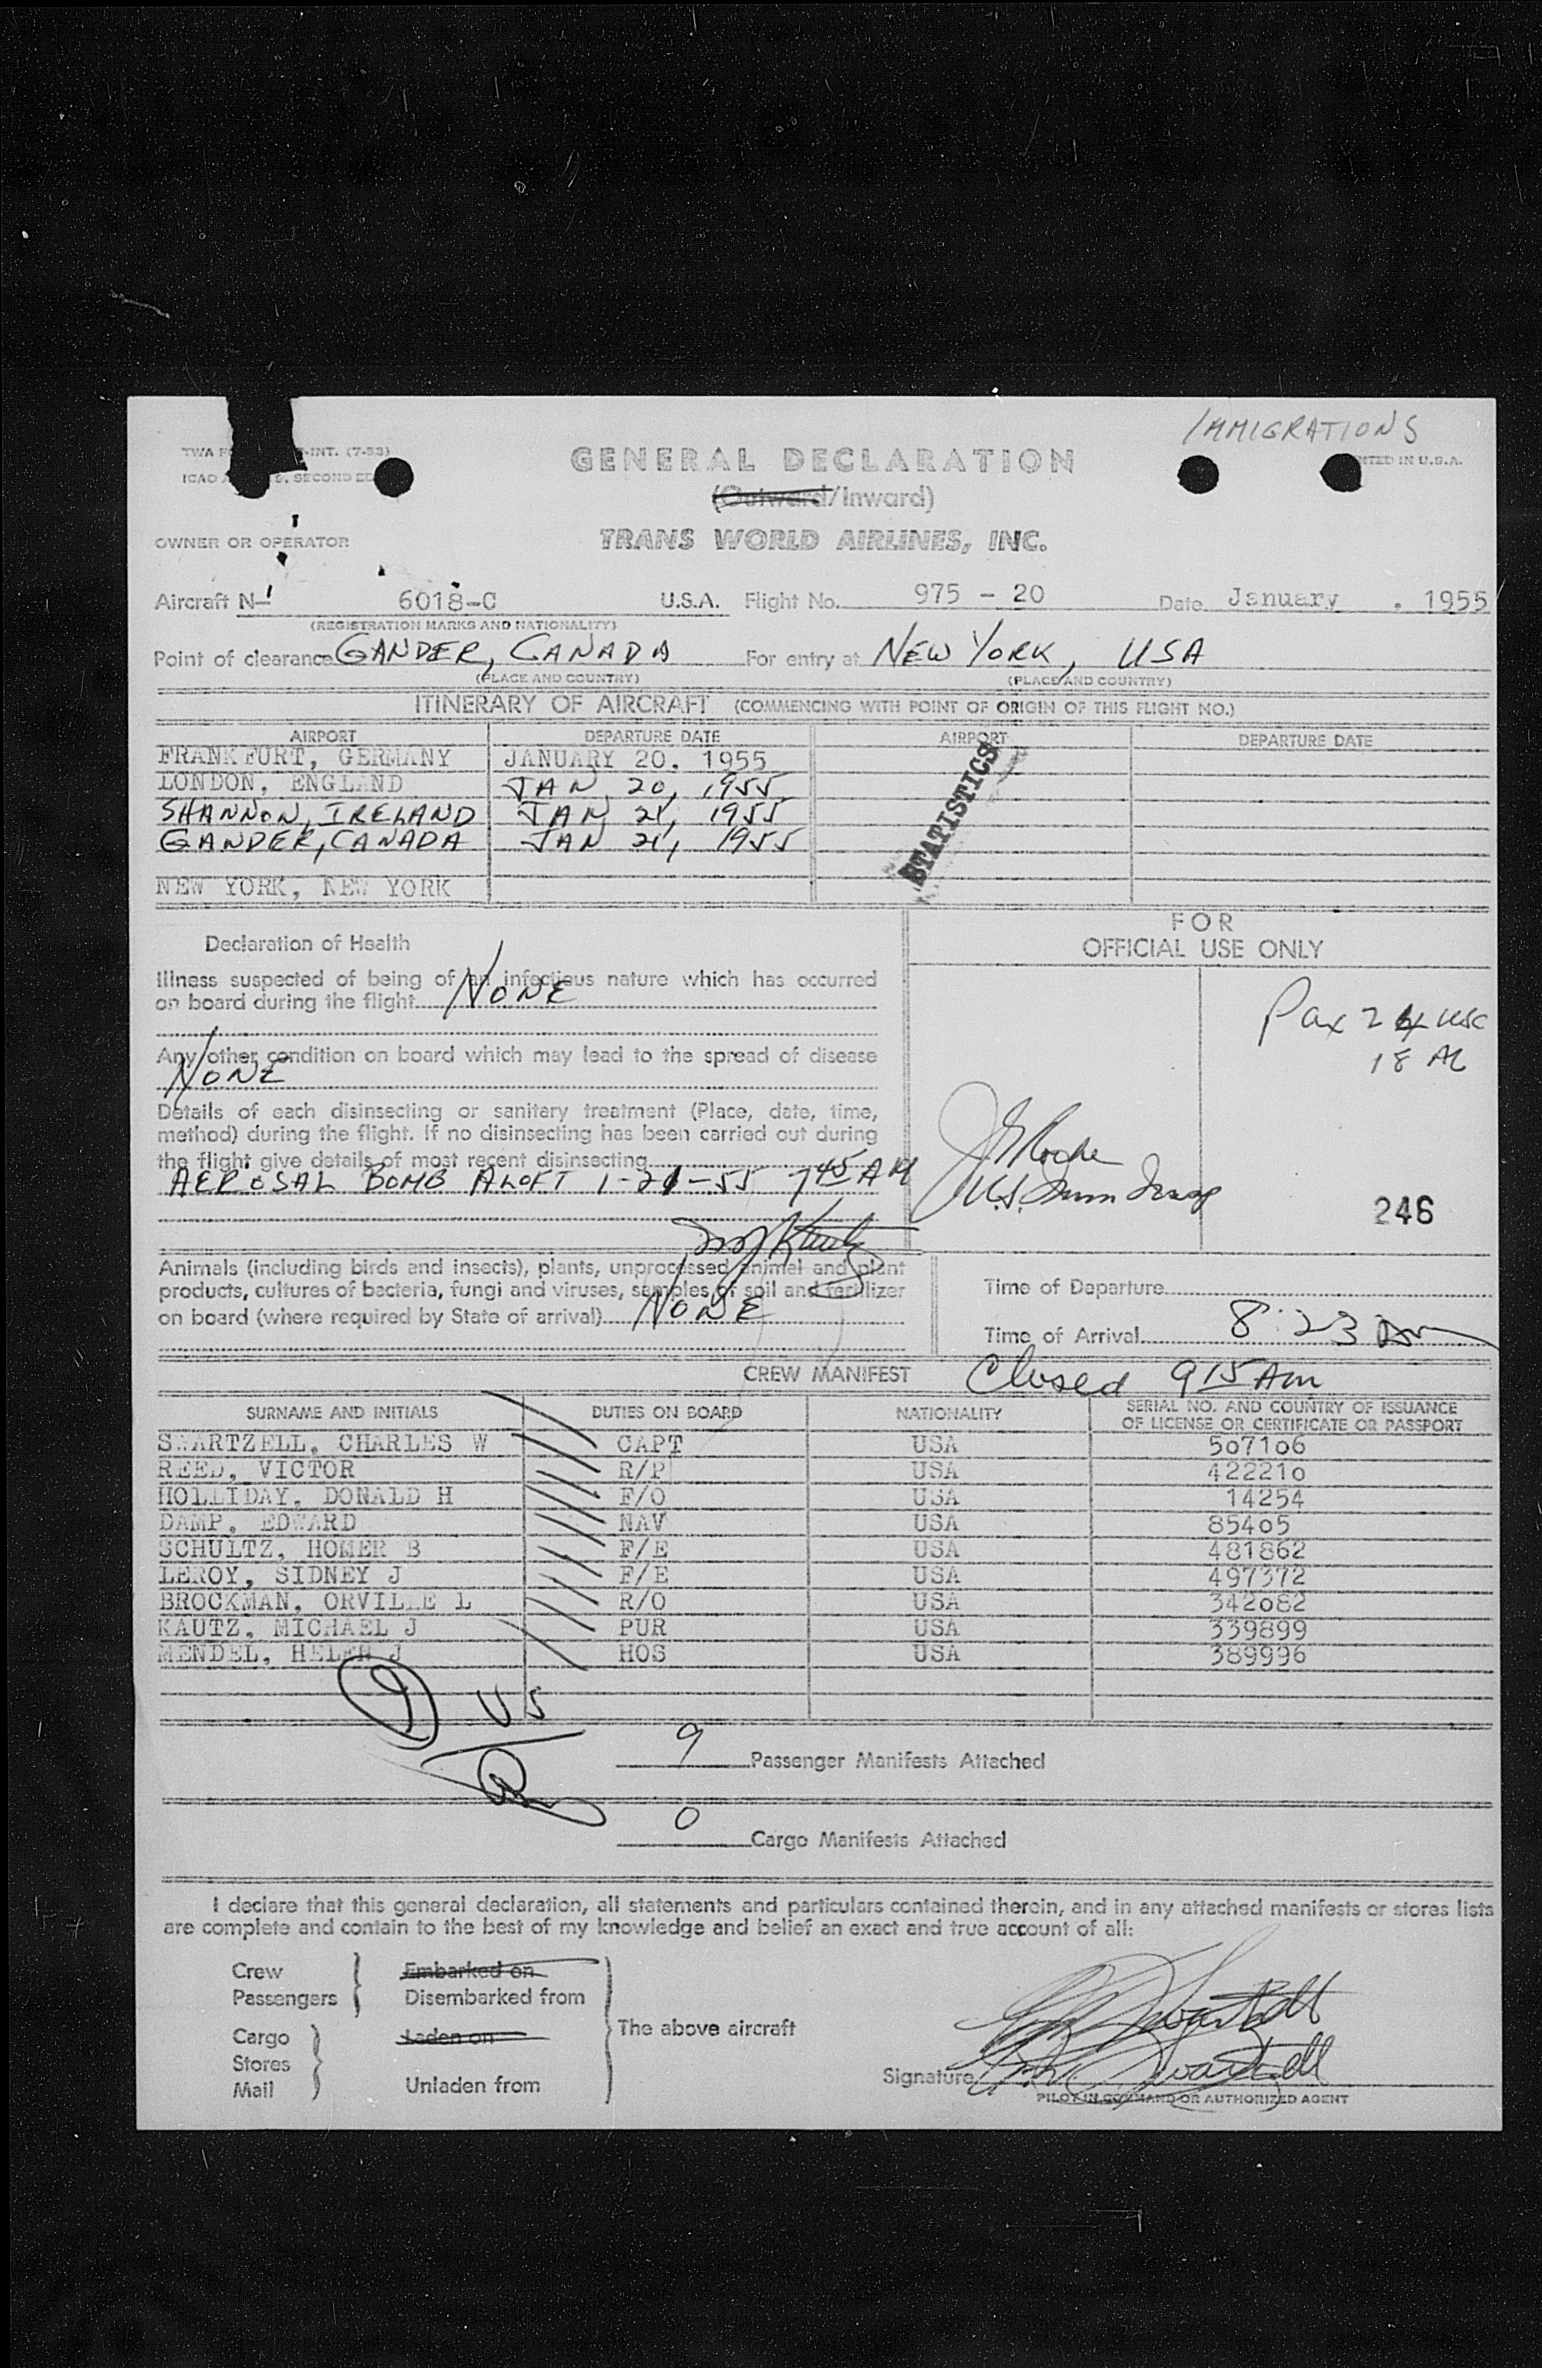 IMMIGRATIONS
TWA -INT. (7-53)
ICAO SECOND
PRINTED IN U.S.A.
GENERAL DECLARATION
(Outward/Inward)
OWNER OR OPERATOR
TRANS WORLD AIRLINES, INC.
Aircraft N- 6018-C U.S.A. Flight No. 975 - 20 Date January . 1955
(REGISTRATION MARKS AND NATIONALITY)
Point of clearance GANDER, CANADA For entry at NEW YORK, USA
(PLACE AND COUNTRY) (PLACE AND COUNTRY)
ITINERARY OF AIRCRAFT (COMMENCING WITH POINT OF ORIGIN OF THIS FLIGHT NO.)
AIRPORT DEPARTURE DATE AIRPORT DEPARTURE DATE
FRANKFURT, GERMANY JANUARY 20. 1955
LONDON, ENGLAND JAN 20, 1955
SHANNON, IRELAND JAN 21, 1955
GANDER, CANADA JAN 21, 1955
NEW YORK, NEW YORK
STATISTICS
FOR
OFFICIAL USE ONLY
Declaration of Health
Illness suspected of being of an infectious nature which has occurred
on board during the flight NONE
Any other condition on board which may lead to the spread of disease
NONE
Details of each disinsecting or sanitary treatment (Place, date, time,
method) during the flight. If no disinsecting has been carried out during
the flight give details of most recent disinsecting
AEROSAL BOMB ALOFT 1-21-55 7 45 AM
Pax 24 USC
18 AL
U.S. Imm Insp
246
Animals (including birds and insects), plants, unprocessed animal and plant
products, cultures of bacteria, fungi and viruses, samples of soil and fertilizer
on board (where required by State of arrival) NONE
Time of Departure
Time of Arrival 8:23 am
CREW MANIFEST Closed 915 Am
SURNAME AND INITIALS DUTIES ON BOARD NATIONALITY SERIAL NO. AND COUNTRY OF ISSUANCE
OF LICENSE OR CERTIFICATE OR PASSPORT
SWARTZELL, CHARLES W CAPT USA 507106
REED, VICTOR R/P USA 422210
HOLLIDAY, DONALD H F/O USA 14254
DAMP, EDWARD NAV USA 85405
SCHULTZ, HOMER B F/E USA 481862
LEROY, SIDNEY J F/E USA 497372
BROCKMAN, ORVILLE L R/O USA 342082
KAUTZ, MICHAEL J PUR USA 339899
MENDEL, HELEN J HOS USA 389996
9 US
9 Passenger Manifests Attached
0 Cargo Manifests Attached
I declare that this general declaration, all statements and particulars contained therein, and in any attached manifests or stores lists
are complete and contain to the best of my knowledge and belief an exact and true account of all:
Crew Embarked on
Passengers Disembarked from
The above aircraft
Cargo Laden on
Stores
Mail Unladen from
Signature C. W. Swartzell
PILOT IN COMMAND OR AUTHORIZED AGENT